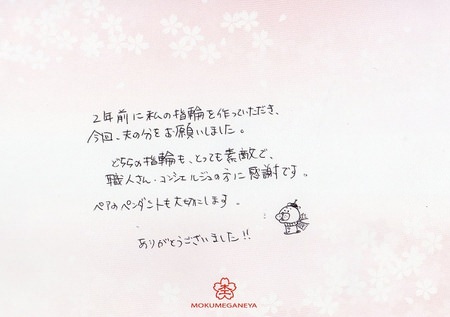 2年前に私の指輪を作っていただき、
今回、夫の分をお願いしました。
どちらの指輪も、とっても素敵で、
職人さん・コンシェルジュの方に感謝です。
ペアのペンダントも大切にします。
ありがとうございました!!
MOKUMEGANEYA